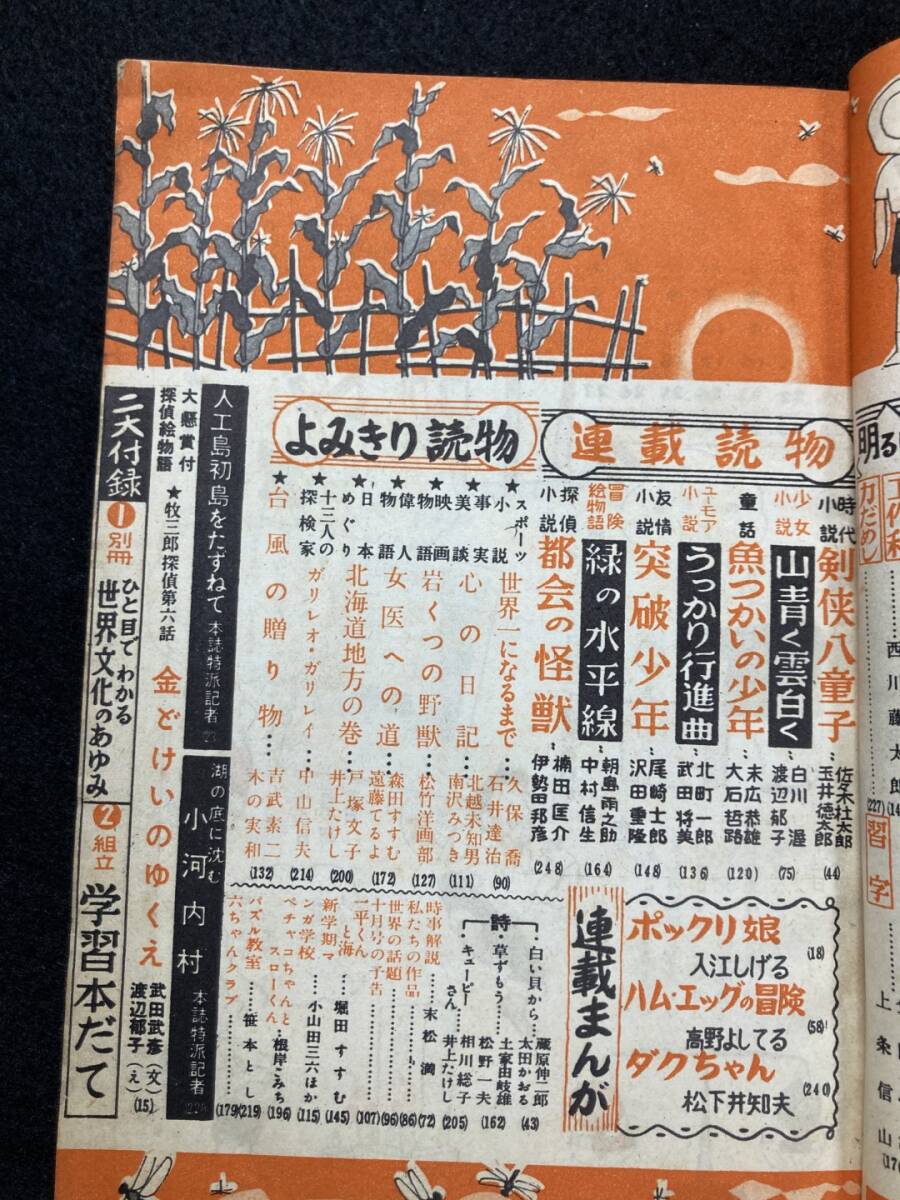 連載読物
時代小説 剣侠八童子 佐々木杜太郎 玉井徳太郎 (44)
少女小説 山青く雲白く 白川渥 渡辺郁子 (75)
童話 魚つかいの少年 末広恭雄 大石哲路 (120)
ユーモア小説 うっかり行進曲 北町一郎 武田将美 (136)
友情小説 突破少年 尾崎士郎 沢田重隆 (148)
冒険絵物語 緑の水平線 朝島雨之助 中村信生 (164)
探偵小説 都会の怪獣 楠田匡介 伊勢田邦彦 (248)
よみきり読物
★スポーツ小説 世界一になるまで 久保喬 石井達治 (90)
★事実美談 心の日記 北越未知男 南沢みつき (111)
★映画物語 岩くつの野獣… 松竹洋画部 (127)
★偉人物語 女医への道 森田すすむ 遠藤てるよ (172)
★日本めぐり 北海道地方の巻… 戸塚文子 井上たけし (200)
★十三人の探検家 ガリレオ・ガリレイ… 中山信夫 (214)
★台風の贈り物… 吉武素二 木の実和 (132)
連載まんが
ポックリ娘 (18)
入江しげる
ハム・エッグの冒険 (58)
高野よしてる
ダクちゃん (240)
松下井知夫
詩
・白い貝から… 蔵原伸二郎 太田かおる (43)
・草ずもう… 土家由岐雄 松野一夫 (162)
・キューピーさん 相川総子 井上たけし (205)
時事解説… 末松満 (72)
私たちの作品… (86)
世界の話題… (96)
十月号の予告… (107)
一平くんと海… 堀田すすむ (145)
新学期マンガ学校… 小山田三六ほか (115)
ペチャコちゃんとスローくん… 根岸こみち (196)
パズル教室… 笹本とし (219)
六ちゃんクラブ… (179)
人工島初島をたずねて 本誌特派記者
湖の底に沈む 小河内村 本誌特派記者
大懸賞付探偵絵物語 ★牧三郎探偵第六話 金どけいのゆくえ 武田武彦(文) 渡辺郁子(え) (15)
二大付録 1別冊 ひと目でわかる世界文化のあゆみ 2組立 学習本だて
明る
工作科
力だめし
西川藤太郎
(227)
習字
上条信山